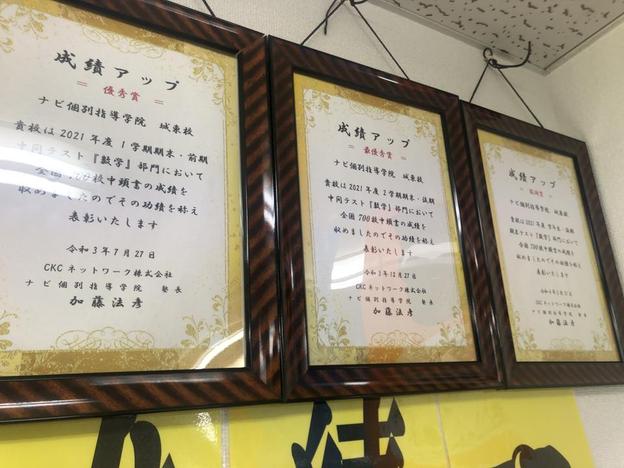 成績アップ
= 優秀賞 =
ナビ個別指導学院 城東校
貴校は2021年度1学期期末・前期
中間テスト『数学』部門において
全国700校中頭書の成績を
収めましたのでその功績を称え
表彰いたします
令和3年7月27日
CKCネットワーク株式会社
ナビ個別指導学院 塾長
加藤法彦
成績アップ
= 最優秀賞 =
ナビ個別指導学院 城東校
貴校は2021年度2学期期末・後期
中間テスト『数学』部門において
全国700校中頭書の成績を
収めましたのでその功績を称え
表彰いたします
令和3年12月27日
CKCネットワーク株式会社
ナビ個別指導学院 塾長
加藤法彦
成績アップ
ナビ個別指導学院 城東校
貴校は2021年度学年末・後期
期末テスト『数学』部門において
全国700校中頭書の成績を
収めましたのでその功績を称え
表彰いたします
CKCネットワーク株式会社
ナビ個別指導学院 塾長
加藤法彦